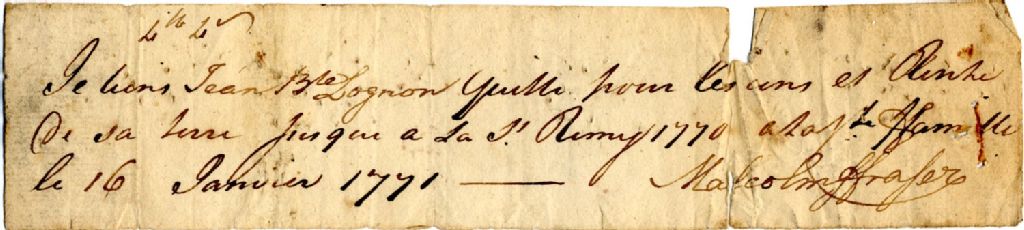 4 tt 4 s
Je tiens Jean Bte Lognon Quitte pour les cens et Rente
de sa terre jusque a La St. Remy 1770 a la Ste ffamille
le 16 Janvier 1771 — Malcolm ffraser